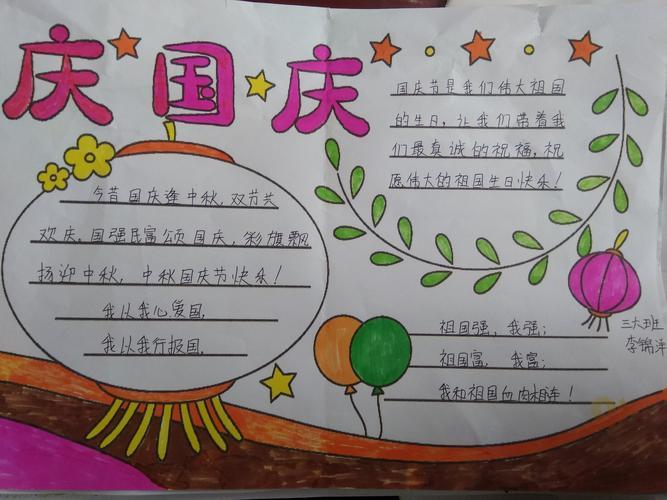 庆国庆
今昔国庆逢中秋,双节共
欢庆。国强民富颂国庆,彩旗飘
扬迎中秋,中秋国庆节快乐!
我以我心爱国,
我以我行报国。
国庆节是我们伟大祖国
的生日,让我们带着我
们最真诚的祝福,祝
愿伟大的祖国生日快乐!
祖国强,我强;
祖国富,我富;
我和祖国血肉相连!
三大班
李锦洋